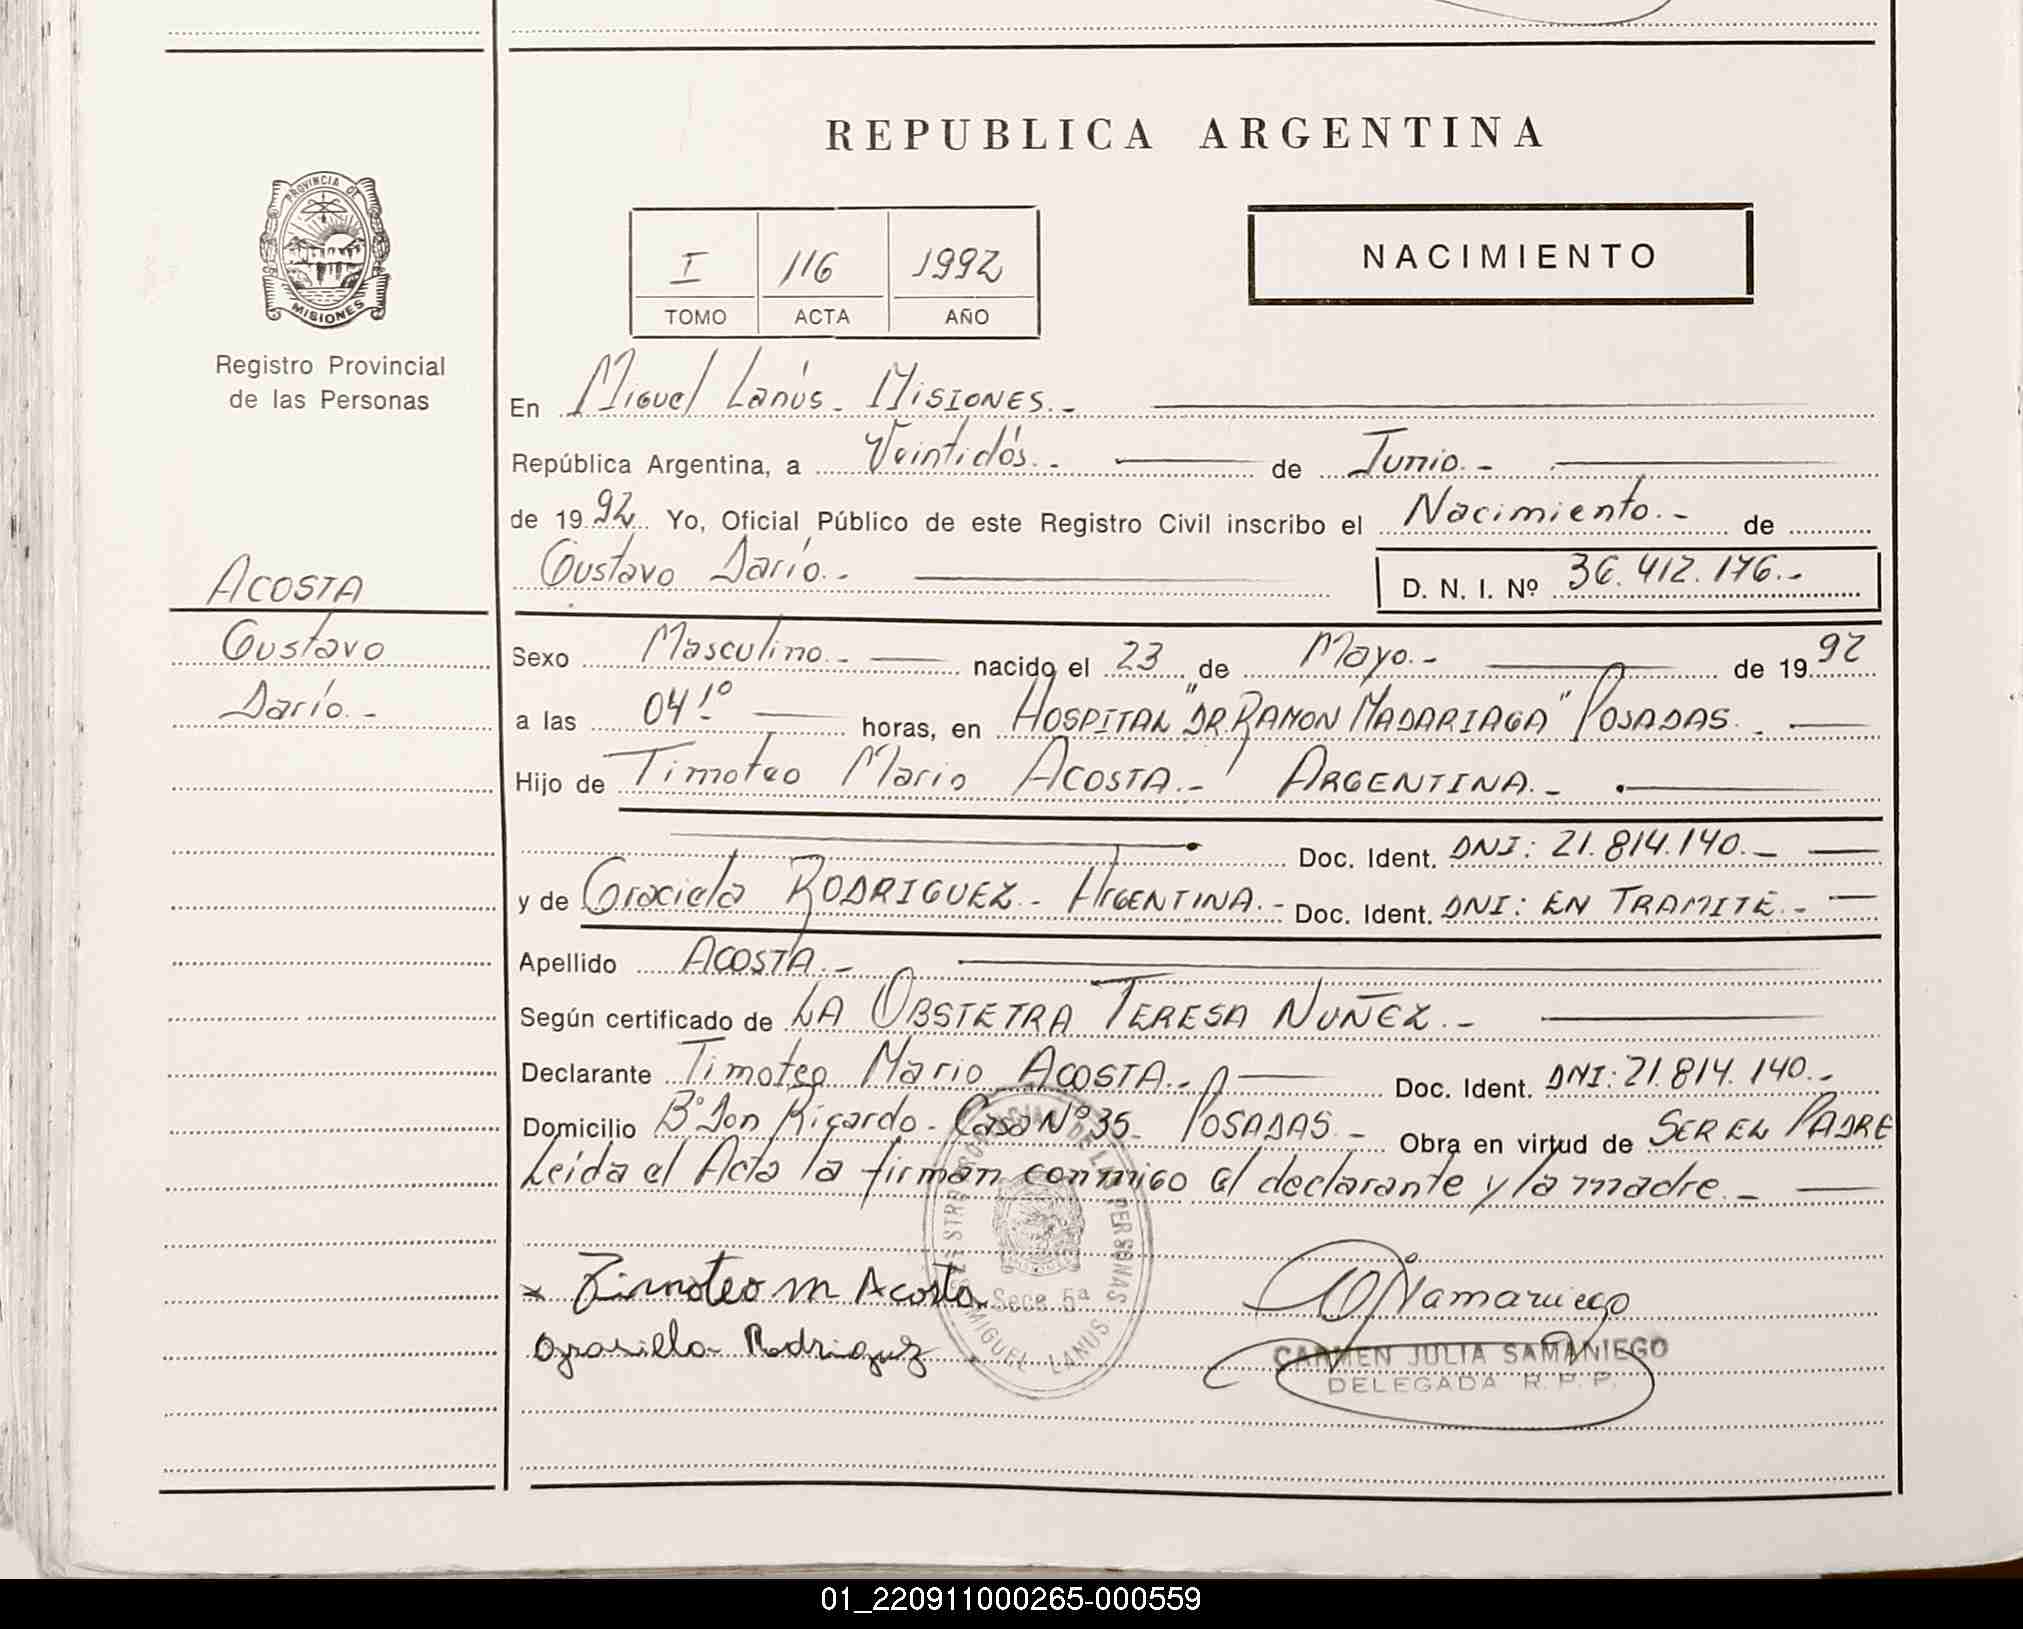 REPUBLICA ARGENTINA
PROVINCIA DE
MISIONES
Registro Provincial
de las Personas
I 116 1992
TOMO ACTA AÑO
NACIMIENTO
En Miguel Lanús - Misiones.-
República Argentina, a Veintidós.- de Junio.-
de 1992 Yo, Oficial Público de este Registro Civil inscribo el Nacimiento.- de
Gustavo Darío.- D. N. I. Nº 36.412.176.-
ACOSTA
Gustavo
Darío.-
Sexo Masculino.- nacido el 23 de Mayo.- de 1992
a las 04!º horas, en HOSPITAL "DR. RAMON MADARIAGA" POSADAS.
Hijo de Timoteo Mario ACOSTA.- ARGENTINA.-
Doc. Ident. DNI: 21.814.140.-
y de Graciela RODRIGUEZ.- ARGENTINA.- Doc. Ident. DNI: EN TRAMITE.-
Apellido ACOSTA.-
Según certificado de LA OBSTETRA TERESA NUÑEZ.-
Declarante Timoteo Mario ACOSTA.- Doc. Ident. DNI: 21.814.140.-
Domicilio Bº Don Ricardo - Casa Nº 35 - POSADAS.- Obra en virtud de SER EL PADRE
Leída el Acta la firman conmigo el declarante y la madre.-
x Timoteo M Acosta
Grasiella Rodriguez
DE LAS PERSONAS
Secc 5ª
MIGUEL LANUS
CJSamaniego
CARMEN JULIA SAMANIEGO
DELEGADA R. P. P.
01_220911000265-000559